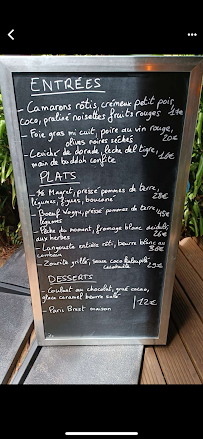 ENTRÉES
- Camarons rôtis, crémeux petit pois,
coco, praliné noisettes fruits rouges 17€
- Foie gras mi cuit, poire au vin rouge,
olives noires séches 20€
- Ceviche de dorade, leche del tigre, 18€
main de buddah confite
PLATS
- Magret, pressé pommes de terre,
légumes, figues, boucané
- Boeuf Wagyu, pressé pommes de terre, 45€
légumes
- Pêche du moment, fromage blanc acidulé
aux herbes 26€
- Langouste entière rôti, beurre blanc au
combava
- Zourite grillé, sauce coco
DESSERTS
- Coulant au chocolat, grué cacao,
glace caramel beurre salé
12€
- Paris Brest maison